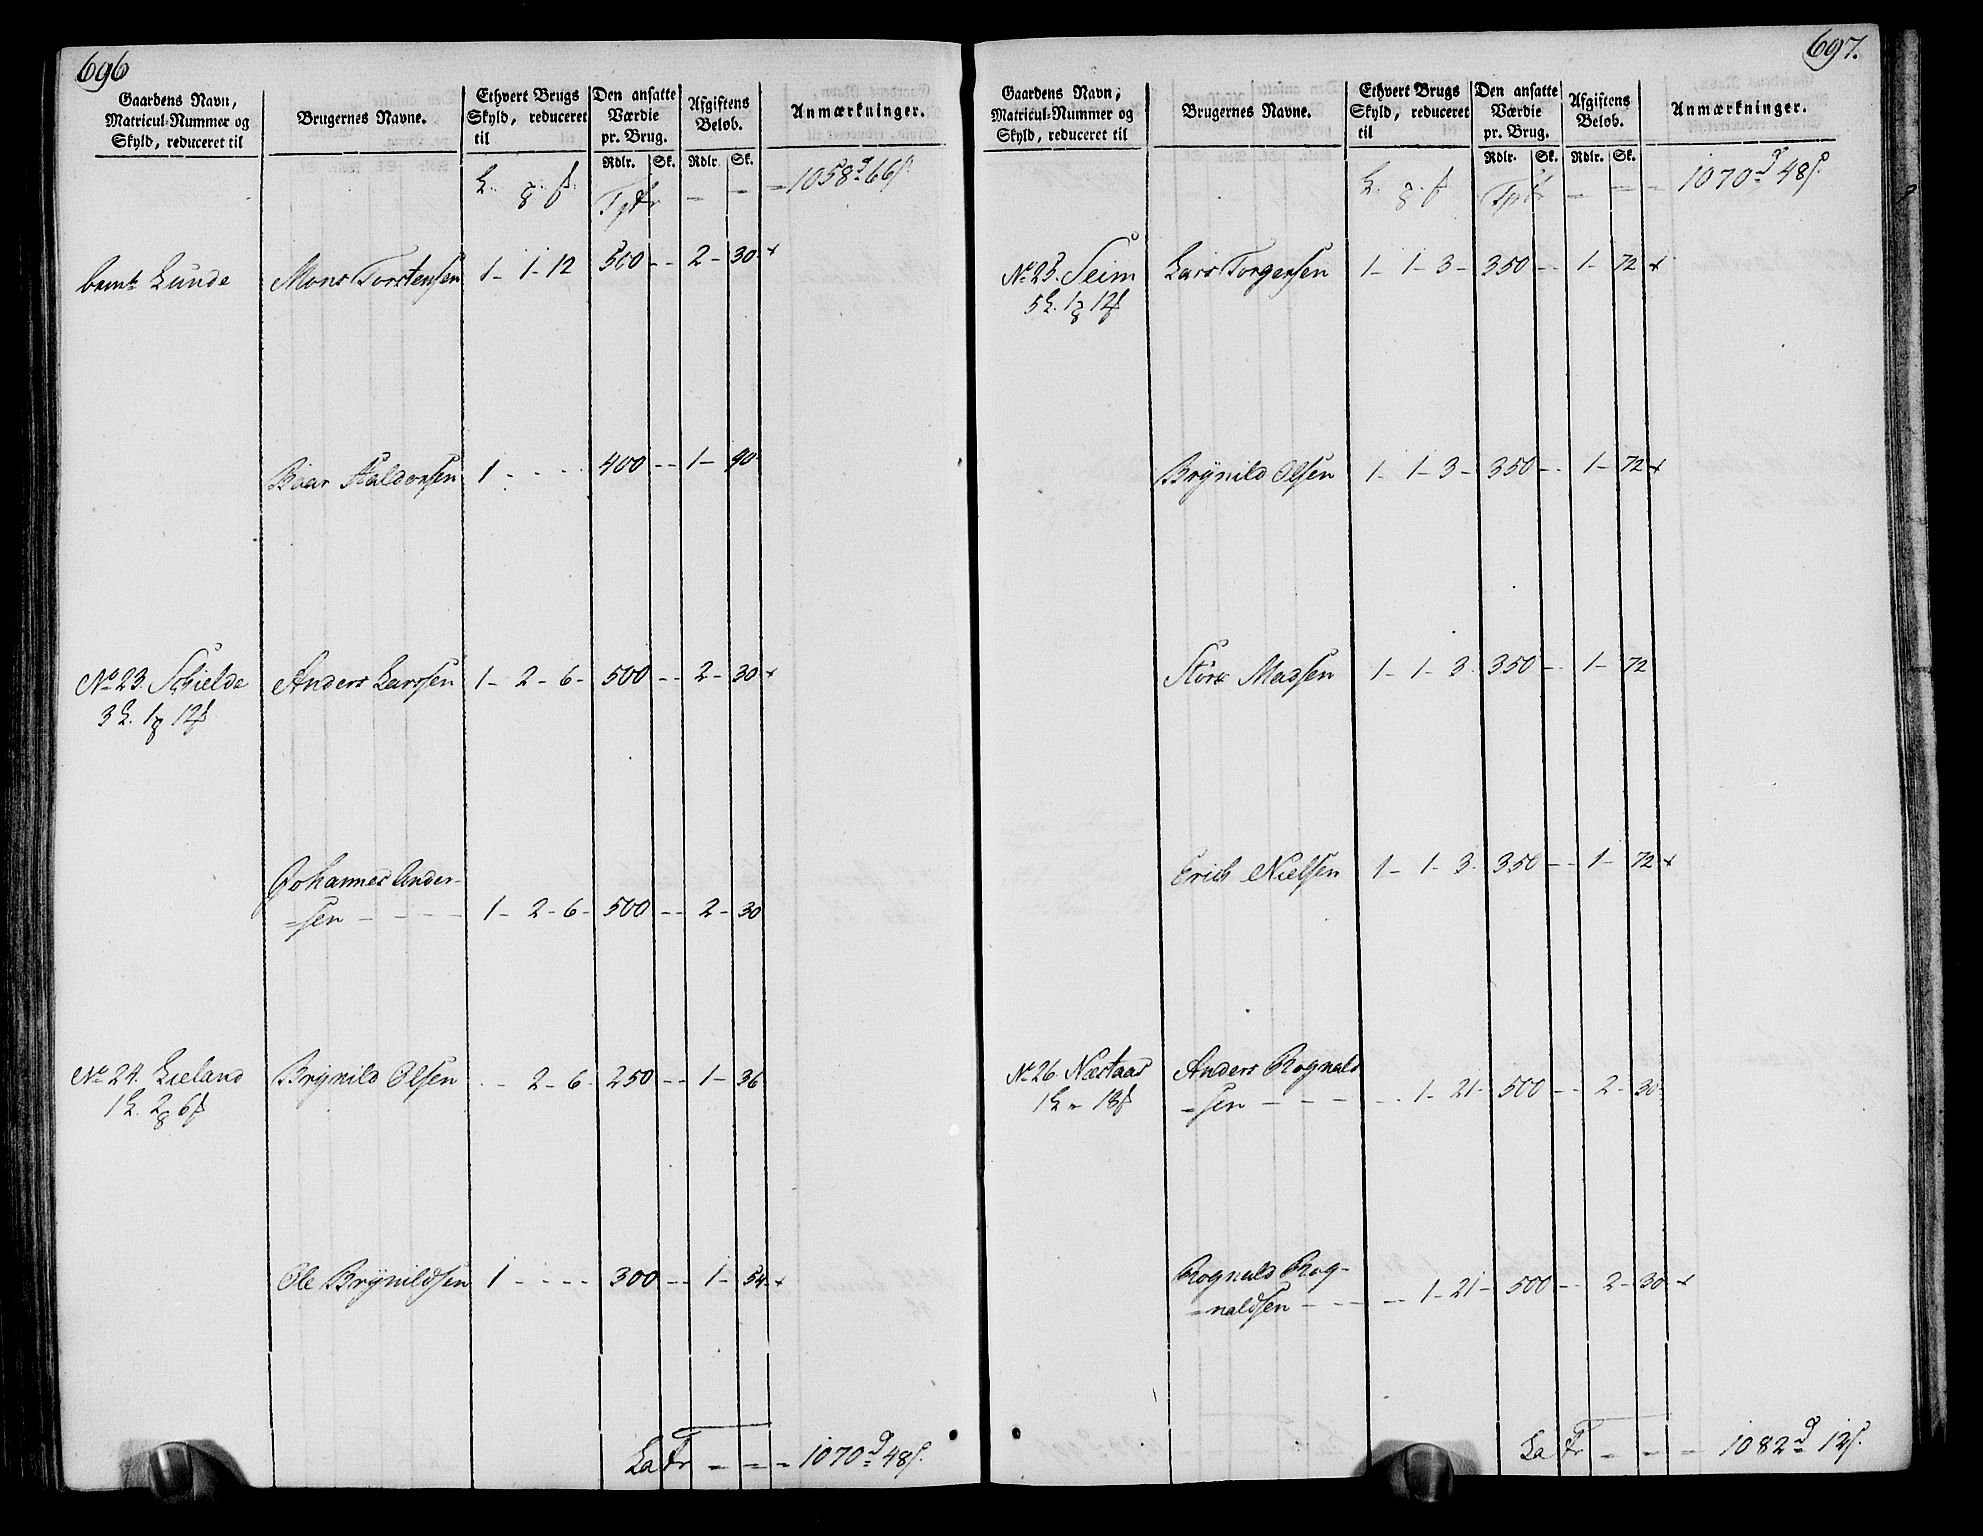 696
Gaardens Navn, Matricul-Nummer og Skyld, reduceret til | Brugernes Navne. | Ethvert Brugs Skyld, reduceret til | Den ansatte Værdie pr. Brug. | Afgiftens Beløb. | Anmærkninger.
Rdlr. Sk. Rdlr. Sk.
Tptr - - - 1058 d 66 s.
Lunde Mons Torstensen 1 - 1 - 12 500 - - 2 - 30 +
Baar Haldorsen 1 - - - 400 - - 1 - 90
No 23. Schielde Anders Larssen 1 - 2 - 6 - 500 - - 2 - 30 +
3 L. 1 12
Johannes Ander-
=sen - - - - 1 - 2 - 6 - 500 - - 2 - 30
No 24. Lieland Brÿnild Olsen - - 2 - 6 - 250 - - 1 - 36
1 L. 2 6
Ole Brÿnildsen 1 - - - - 300 - - 1 - 54 +
La Tr - - - 1070 d 48 s.
697.
Gaardens Navn, Matricul-Nummer og Skyld, reduceret til | Brugernes Navne. | Ethvert Brugs Skyld, reduceret til | Den ansatte Værdie pr. Brug. | Afgiftens Beløb. | Anmærkninger.
Rdlr. Sk. Rdlr. Sk.
Tptr - - - 1070 d 48 s.
No 25. Seim Lars Torgersen 1 - 1 - 3 - 350 - - 1 - 72 +
5 L. 1 12
Brÿnild Olsen 1 - 1 - 3 - 350 - - 1 - 72 +
Madsen 1 - 1 - 3 350 - - 1 - 72
Erich Nielsen 1 - 1 - 3 - 350 - - 1 - 72 +
No 26. Næstaas Anders Rognald
1 L - 18 =sen - - - - - 1 - 21 - 500 - - 2 - 30
Rognald Rog-
=naldsen - - - - 1 - 21 - 500 - - 2 - 30 +
La Tr - - - 1082 d 12 s.